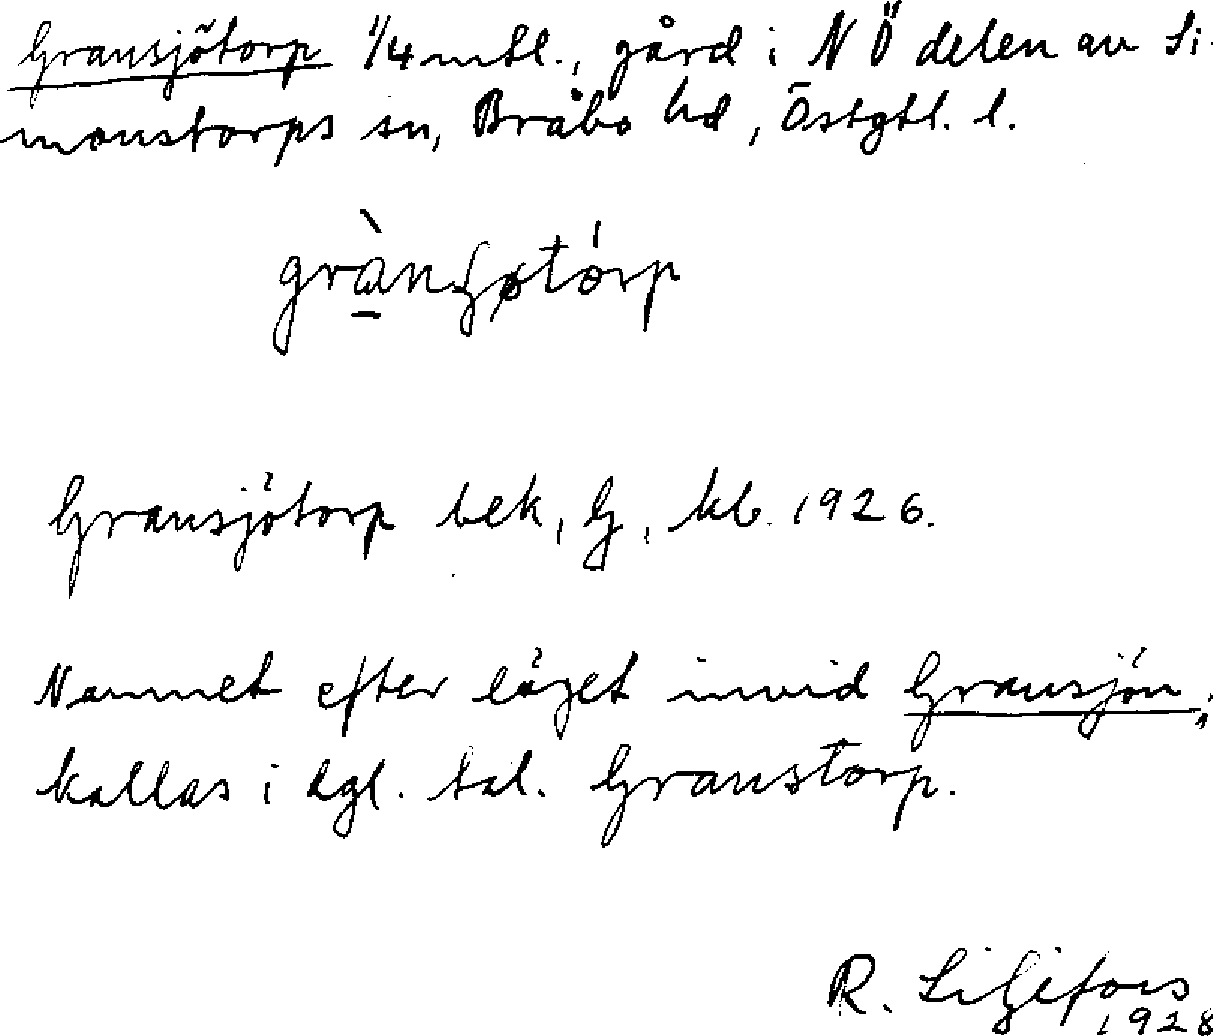 Gransjötorp 1/4 mtl., gård i NÖ delen av Si-
monstorps sn, Bråbo hd, Östgtl. l.
Gransjötorp bek, G, kb. 1926.
Namnet efter läget invid Gransjön;
kallas i dgl. tal. Granstorp.
R. Liljefors
1928